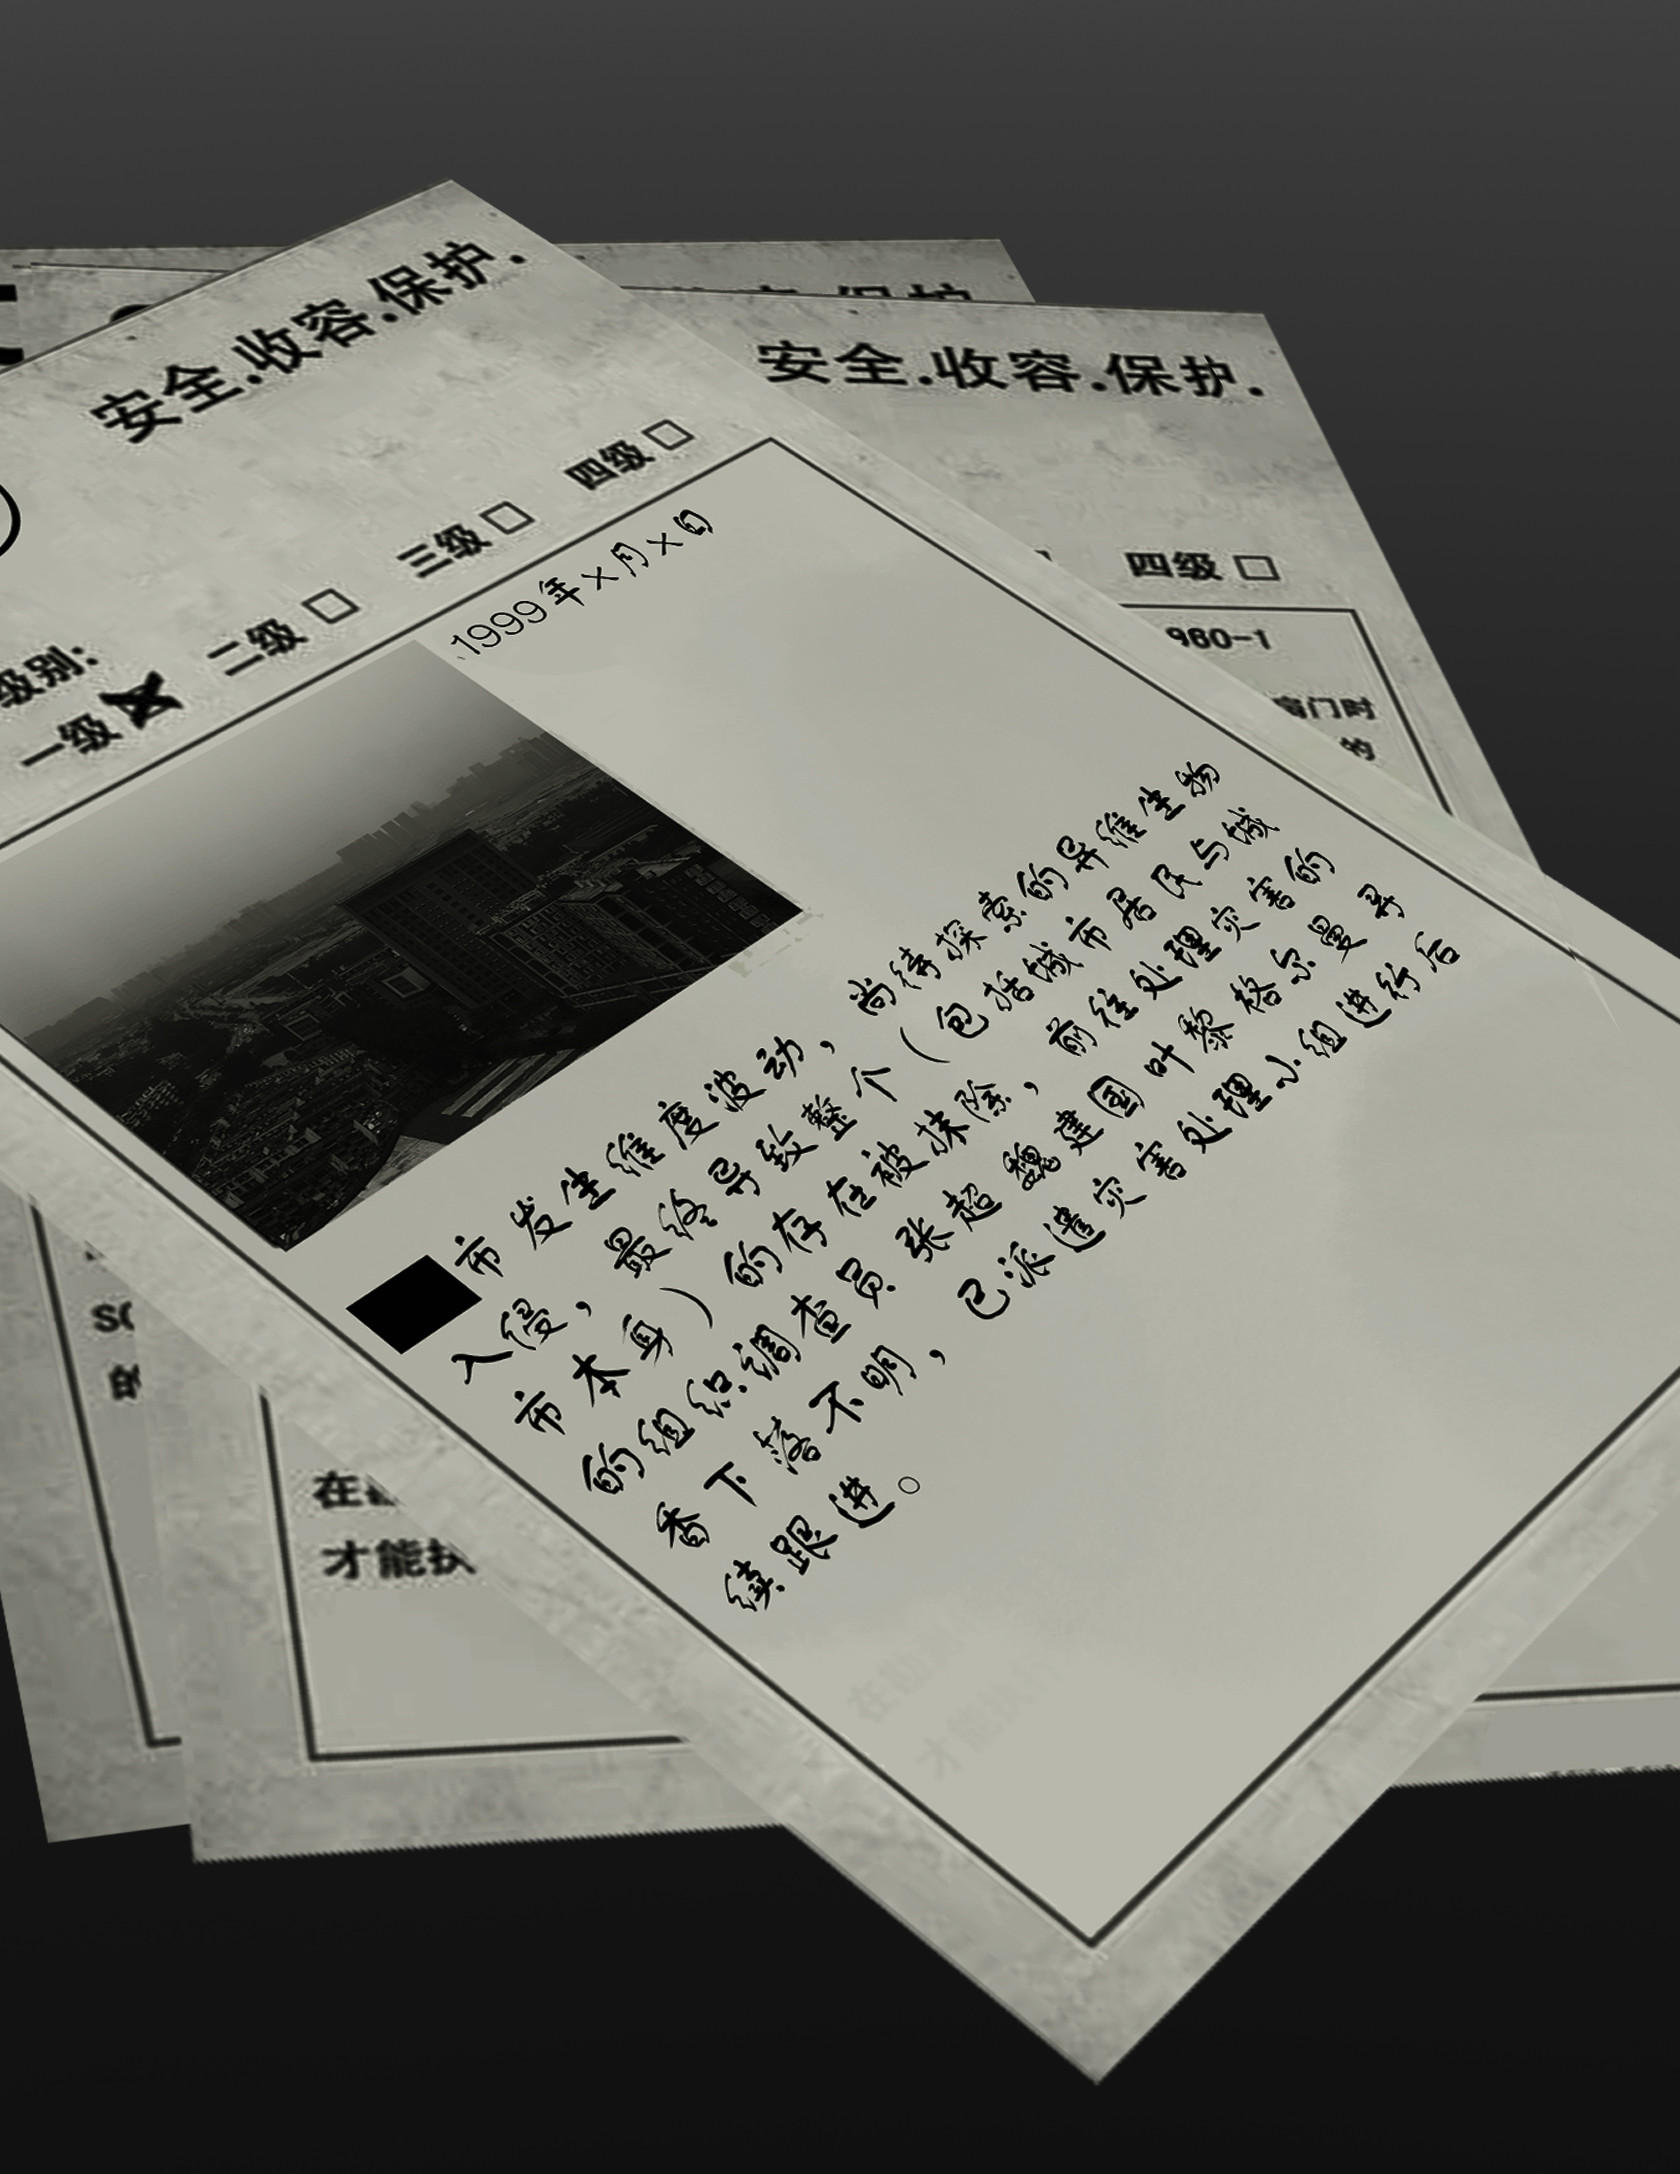 安全.收容.保护.
级别:
一级 二级 □ 三级 □ 四级 □
1999年×月×日
市发生维度波动，尚待探索的异维生物
入侵，最终导致整个（包括城市居民与城
市本身）的存在被抹除，前往处理灾害的
的组织调查员 张超 魏建国 叶黎 格尔曼 寻
香 下落不明，已派遣灾害处理小组进行后
续跟进。
保护
安全.收容.保护.
四级 □
960-1
窗门时
的
在
才能执
在
才能执